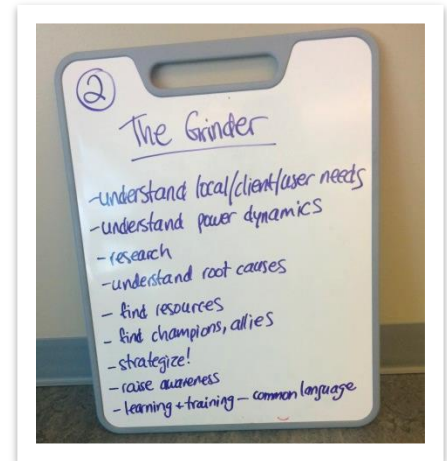 2
The Grinder
-understand local/client/user needs
-understand power dynamics
-research
-understand root causes
- find resources
- find champions, allies
-strategize!
-raise awareness
-learning + training — common language